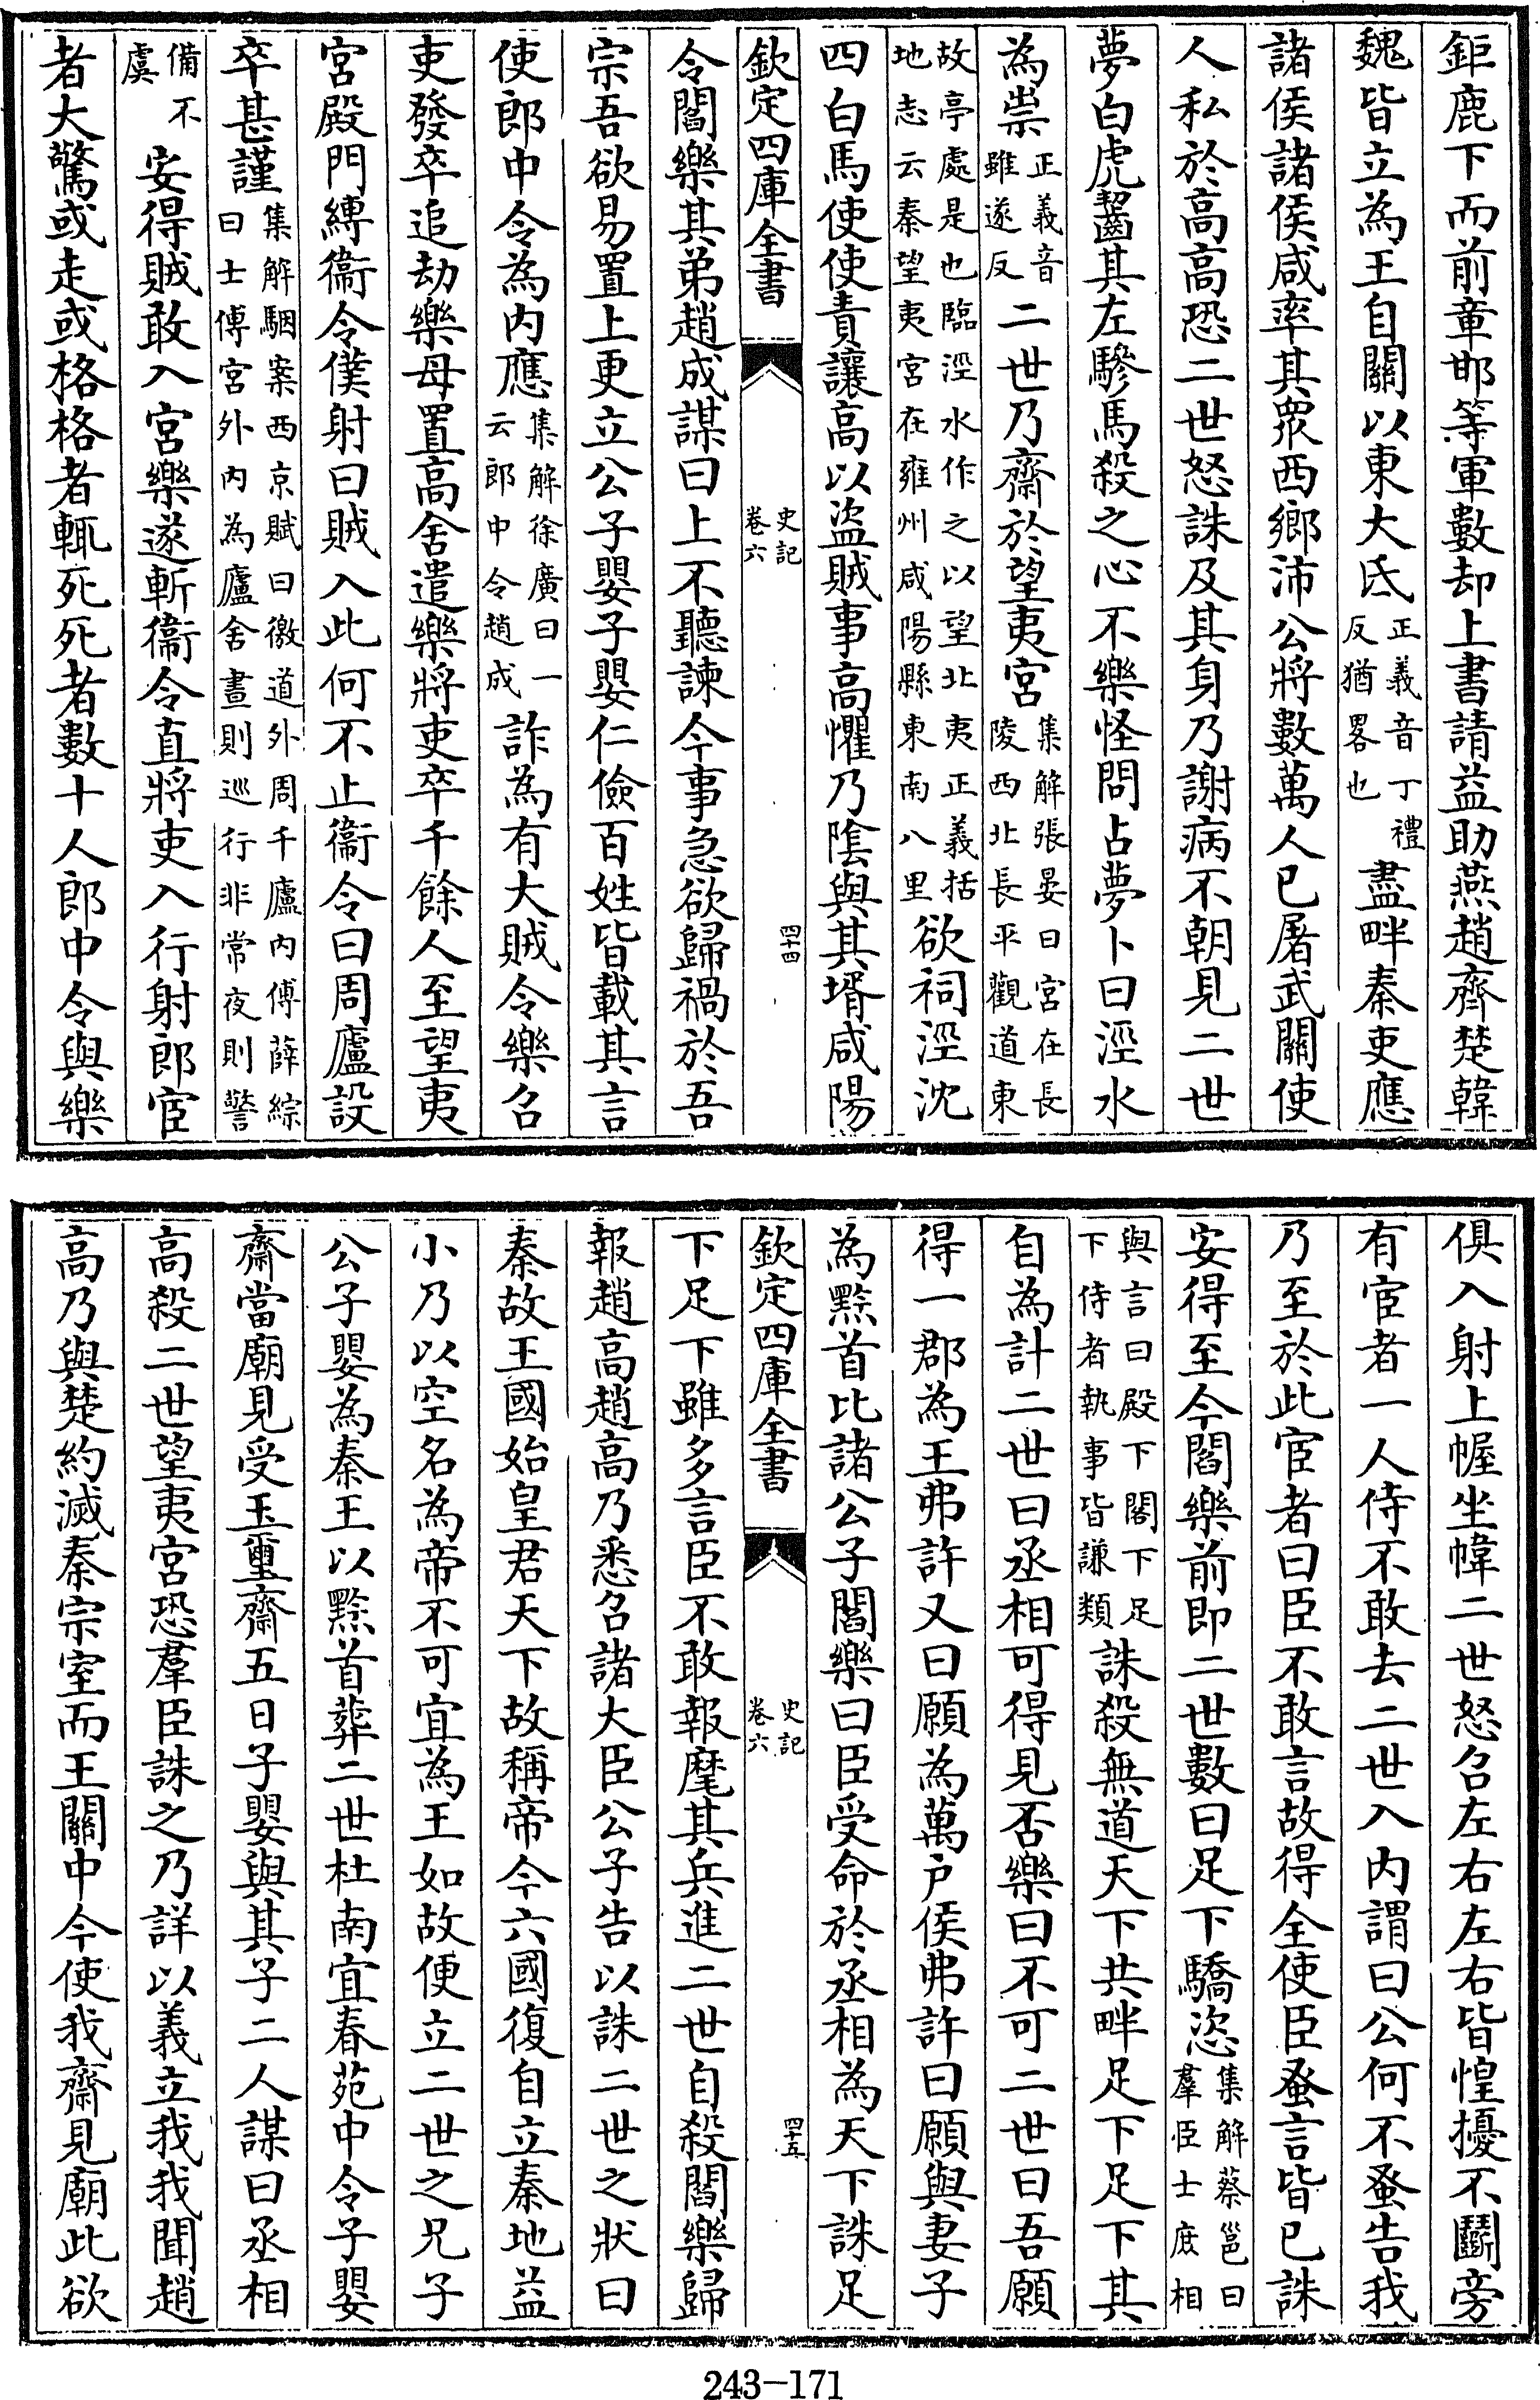 鉅鹿下而前章邯等軍數却上書請益助燕趙齊楚韓
魏皆立為王自關以東大氐正義音丁禮反猶畧也盡畔秦吏應
諸侯諸侯咸率其眾西鄉沛公將數萬人已屠武關使
人私於高高恐二世怒誅及其身乃謝病不朝見二世
夢白虎齧其左驂馬殺之心不樂怪問占夢卜曰涇水
為祟正義音雖遂反二世乃齋於望夷宮集解張晏曰宮在長陵西北長平觀道東
故亭處是也臨涇水作之以望北夷正義括地志云秦望夷宮在雍州咸陽縣東南八里欲祠涇沈
四白馬使使責讓高以盜賊事高懼乃隂與其壻咸陽
欽定四庫全書 史記卷六 四十四
令閻樂其弟趙成謀曰上不聽諫今事急欲歸禍於吾
宗吾欲易置上更立公子嬰子嬰仁儉百姓皆載其言
使郎中令為内應集解徐廣曰一云郎中令趙成詐為有大賊令樂召
吏發卒追劫樂母置高舍遣樂將吏卒千餘人至望夷
宮殿門縛衞令僕射曰賊入此何不止衞令曰周廬設
卒甚謹集解駰案西京賦曰徼道外周千廬内傅薛綜曰士傅宮外内為廬舍晝則巡行非常夜則警
備不虞安得賊敢入宮樂遂斬衞令直將吏入行射郎宦
者大驚或走或格格者輒死死者數十人郎中令與樂
俱入射上幄坐幃二世怒召左右左右皆惶擾不鬭旁
有宦者一人侍不敢去二世入内謂曰公何不蚤告我
乃至於此宦者曰臣不敢言故得全使臣蚤言皆已誅
安得至今閻樂前即二世數曰足下驕恣集解蔡邕曰羣臣士庶相
與言曰殿下閣下足下侍者執事皆謙類誅殺無道天下共畔足下足下其
自為計二世曰丞相可得見否樂曰不可二世曰吾願
得一郡為王弗許又曰願為萬户侯弗許曰願與妻子
為黔首比諸公子閻樂曰臣受命於丞相為天下誅足
欽定四庫全書 史記卷六 四十五
下足下雖多言臣不敢報麾其兵進二世自殺閻樂歸
報趙高趙高乃悉召諸大臣公子告以誅二世之狀曰
秦故王國始皇君天下故稱帝今六國復自立秦地益
小乃以空名為帝不可宜為王如故便立二世之兄子
公子嬰為秦王以黔首葬二世杜南宜春苑中令子嬰
齋當廟見受玉璽齋五日子嬰與其子二人謀曰丞相
高殺二世望夷宮恐羣臣誅之乃詳以義立我我聞趙
高乃與楚約滅秦宗室而王關中今使我齋見廟此欲
243-171